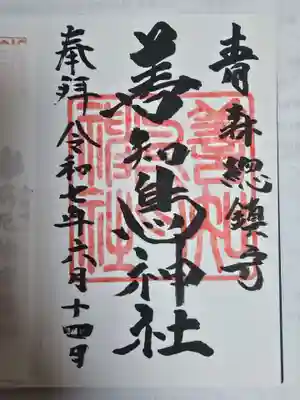 青森總鎮守
善知鳥神社
奉拝 令和七年六月十四日
善知鳥神社